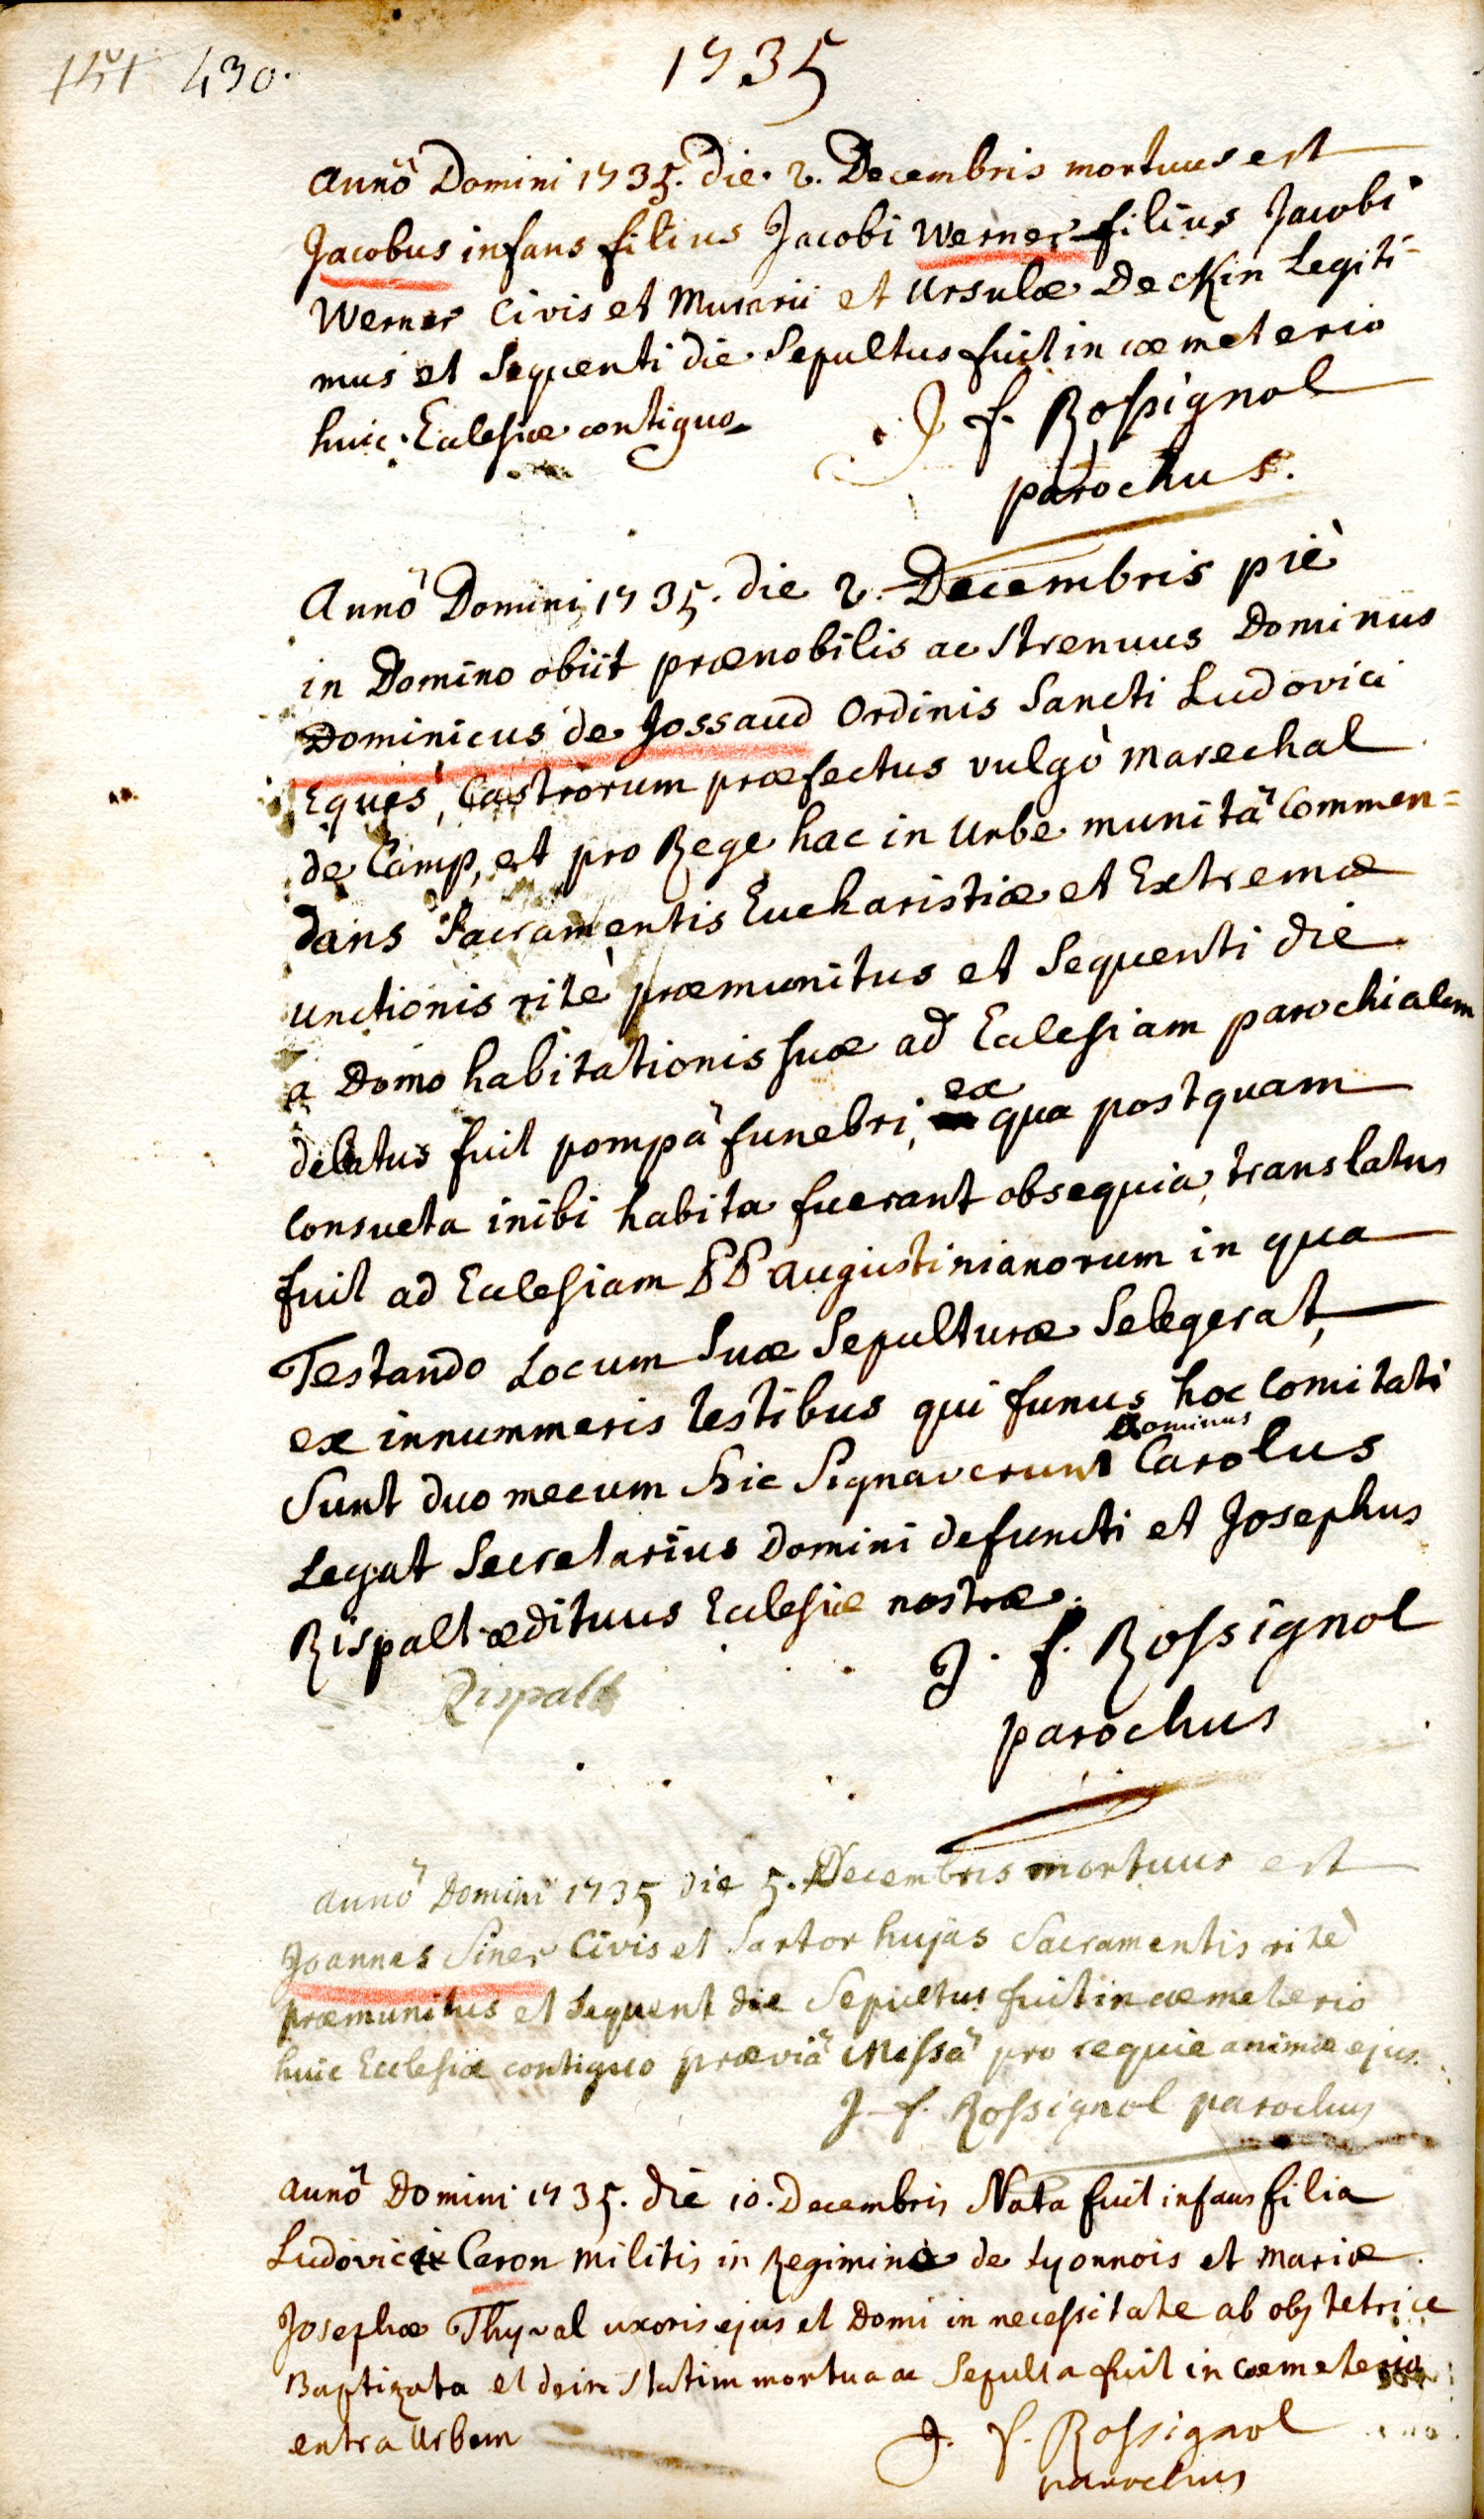 151 430.
1735
Annô Domini 1735. die. 2. Decembris mortuus est
Jacobus infans filius Jacobi Werner filius Jacobi
Werner Civis et Murarii et Ursulæ Deckin Legiti=
mus et Sequenti die Sepultus fuit in cœmeterio
huic Eclesiæ contiguo
J f. Rossignol
parochus.
Annô Domini 1735. die 2. Decembris piè
in Domino obiit prænobilis ac Strenuus Dominus
Dominicus de Jossaud Ordinis Sancti Ludovici
Eques, Castrorum præfectus vulgò Marechal
de Camp, et pro Rege hac in Urbe munitâ Commen=
dans Sacramentis Eucharistiæ et Extremæ
Unctionis ritè præmunitus et Sequenti die
a Domo habitationis suæ ad Eclesiam parochialem
delatus fuit pompâ funebri, ex qua postquam
Consueta inibi habita fuerant obsequia, translatus
fuit ad Eclesiam PP Augustinianorum in qua
Testando Locum Suæ Sepulturæ Selegerat,
ex innummeris testibus qui funus hoc Comitati
Sunt duo mecum hic Signaverunt Dominus Carolus
Legat Secretarius Domini defuncti et Josephus
Rispalt ædituus Eclesiæ nostræ.
Rispalt
J. f. Rossignol
parochus
Annô Domini 1735 die 5. Decembris mortuus est
Joannes Siner Civis et Sartor hujas Sacramentis ritè
præmunitus et Sequent die Sepultus fuit in cœmeterio
huic Ecclesiæ contiguo præviâ Missâ pro requie animæ ejus.
J. f. Rossignol parochus
Annô Domini 1735. die 10. Decembris Nata fuit infans filia
Ludovici Caron Militis in Regimine de Lyonnois et Mariæ
Josephæ Thyval uxoris ejus et Domi in necessitate ab obstetrice
Baptizata et dein Statim mortua ac Sepulta fuit in Cœmeterio
extra Urbem
J. f. Rossignol
parochus